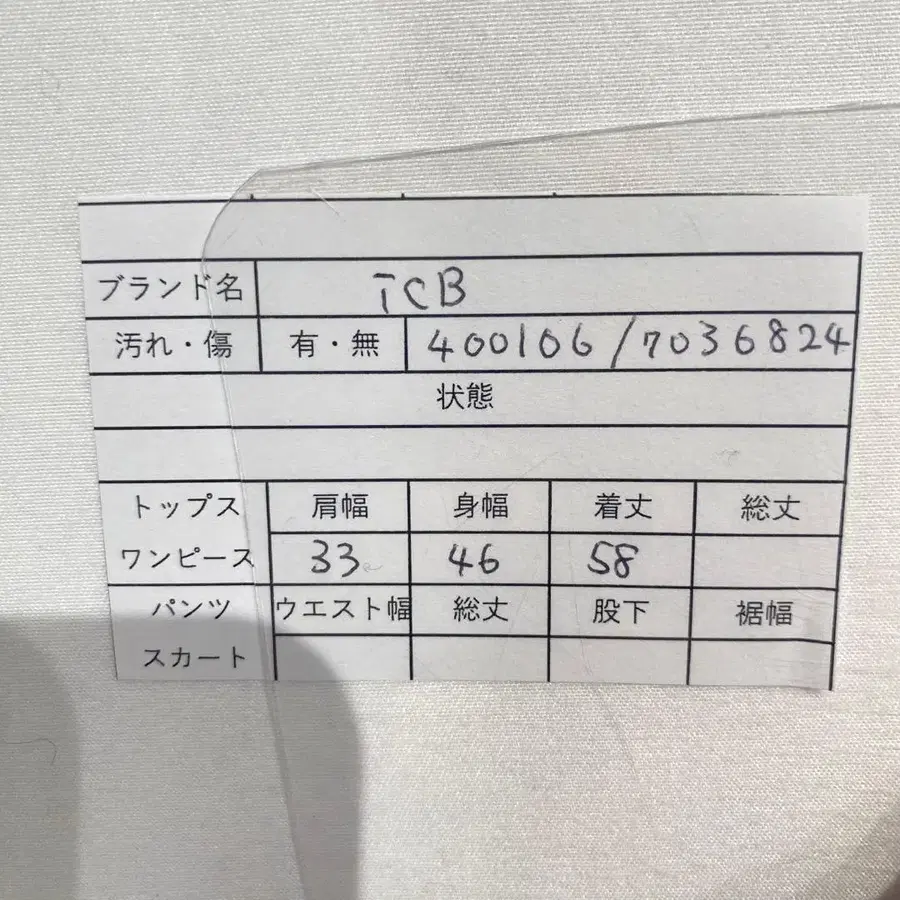 ブランド名 TCB
汚れ・傷 有・無 400106/7036824
状態
トップス 肩幅 身幅 着丈 総丈
ワンピース 33 46 58
パンツ ウエスト幅 総丈 股下 裾幅
スカート